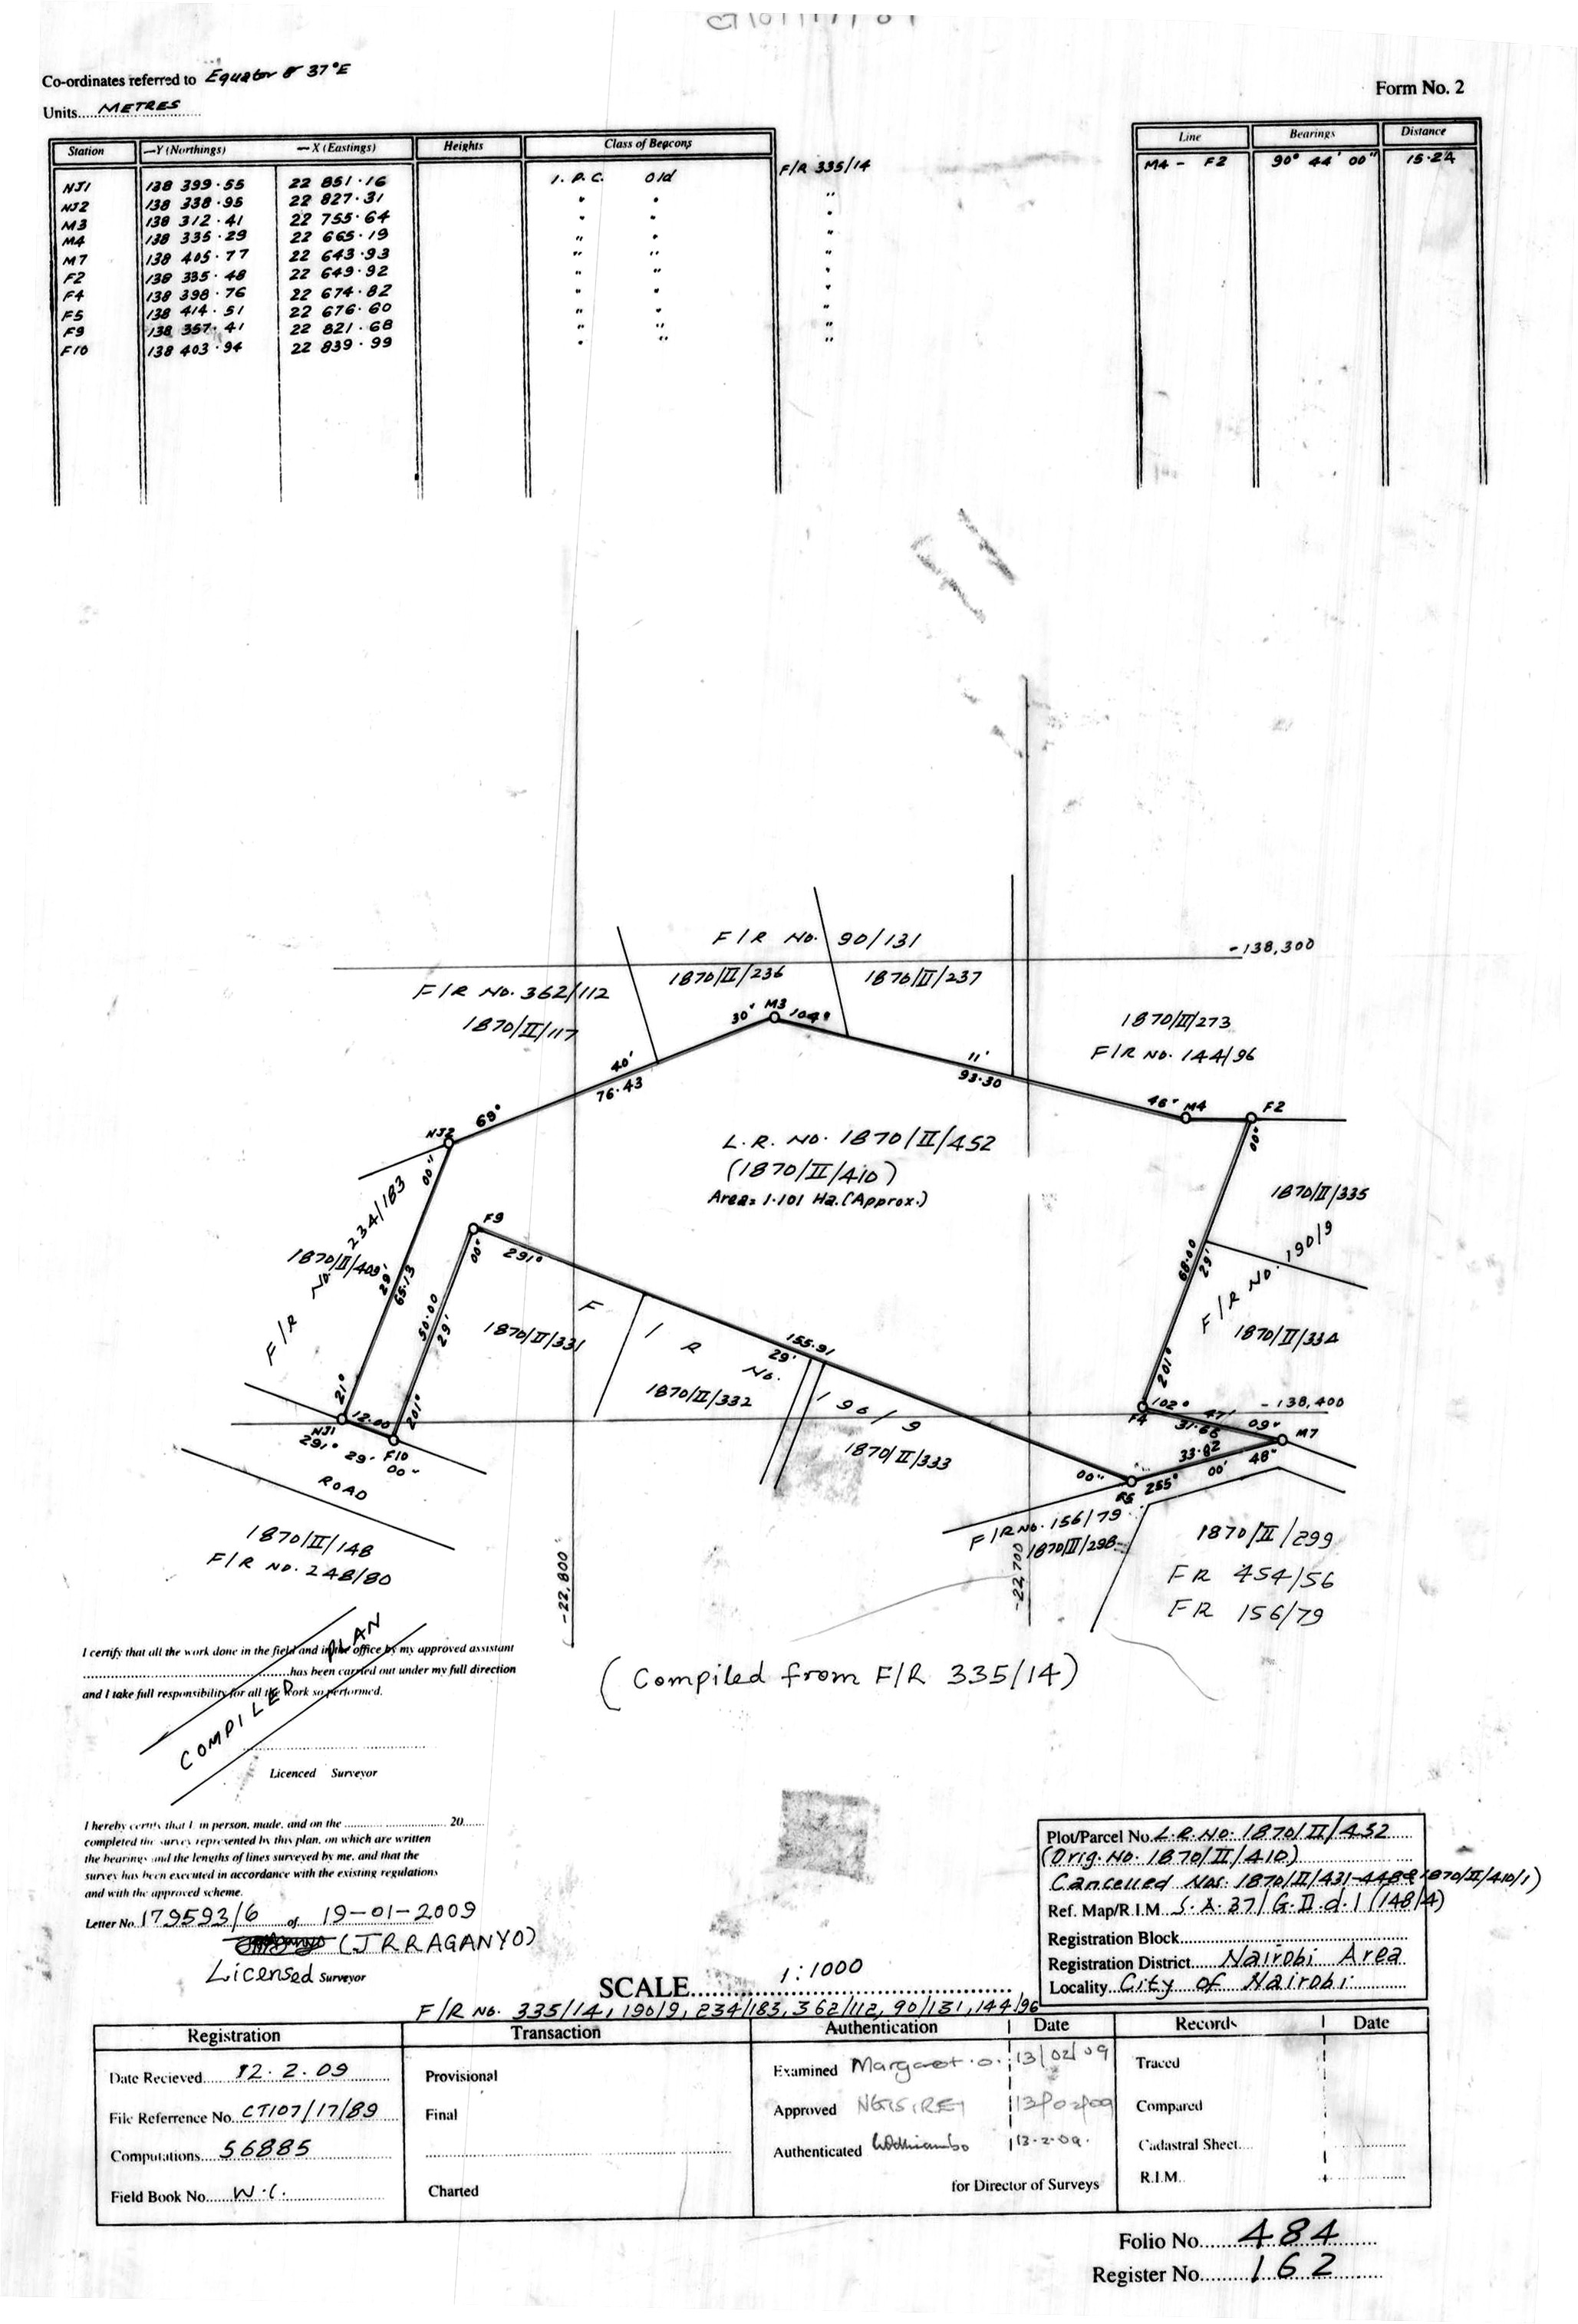 Co-ordinates referred to Equator & 37°E
Units METRES
Form No. 2
Station —Y (Northings) —X (Eastings) Heights Class of Beacons
NJ1 138 399·55 22 851·16 I.P.C. Old F/R 335/14
NJ2 138 338·95 22 827·31 " " "
M3 138 312·41 22 755·64 " " "
M4 138 335·29 22 665·19 " " "
M7 138 405·77 22 643·93 " " "
F2 138 335·48 22 649·92 " " "
F4 138 398·76 22 674·82 " " "
F5 138 414·51 22 676·60 " " "
F9 138 357·41 22 821·68 " " "
F10 138 403·94 22 839·99 " " "
Line Bearings Distance
M4 - F2 90° 44' 00" 15·24
F/R No. 90/131
-138,300
1870/II/236 1870/II/237
F/R No. 362/112
1870/II/117
30" M3 104°
1870/II/273
F/R No. 144/96
40'
76·43
11'
93·30
69°
46" M4 F2
NJ2
00"
00"
L.R. No. 1870/II/452
(1870/II/410)
Area= 1·101 Ha.(Approx.)
1870/II/335
F/R No. 234/183
1870/II/409
29'
65·13
F9
00"
291°
68·00
29'
F/R No. 190/9
50·00
29'
1870/II/331
F/R No. 196/9
155·91
29'
1870/II/334
1870/II/332
201°
21°
12·00
201°
NJ1
F10
291° 29' 00"
F4
102° 47' 09"
31·66
-138,400
M7
33·82
1870/II/333
00"
F5 255° 00' 48"
ROAD
1870/II/148
F/R No. 248/80
F/R No. 156/79
1870/II/298
1870/II/299
FR 454/56
FR 156/79
-22,800
-22,700
COMPILED PLAN
I certify that all the work done in the field and in the office by my approved assistant
has been carried out under my full direction
and I take full responsibility for all the work so performed.
Licenced Surveyor
(Compiled from F/R 335/14)
I hereby certify that I, in person, made, and on the 20
completed the survey represented by this plan, on which are written
the bearings and the lengths of lines surveyed by me, and that the
survey has been executed in accordance with the existing regulations
and with the approved scheme.
Letter No. 179593/6 of 19-01-2009
(J R RAGANYO)
Licensed Surveyor
Plot/Parcel No. L.R. No. 1870/II/452
(Orig. No. 1870/II/410)
Cancelled Nos. 1870/II/431-448 & 1870/II/410/1)
Ref. Map/R.I.M S.A. 37/G.II.d.1 (148/4)
Registration Block
Registration District Nairobi Area
Locality City of Nairobi
SCALE 1:1000
F/R No. 335/14, 190/9, 234/183, 362/112, 90/131, 144/96
Registration Transaction Authentication Date Records Date
Date Recieved 12.2.09
File Referrence No. CT107/17/89
Computations 56885
Field Book No. W.C.
Provisional
Final
Charted
Examined Margaret.O. 13/02/09
Approved 13/02/09
Authenticated 13.2.09.
for Director of Surveys
Traced
Compared
Cadastral Sheet
R.I.M.
Folio No. 484
Register No. 162